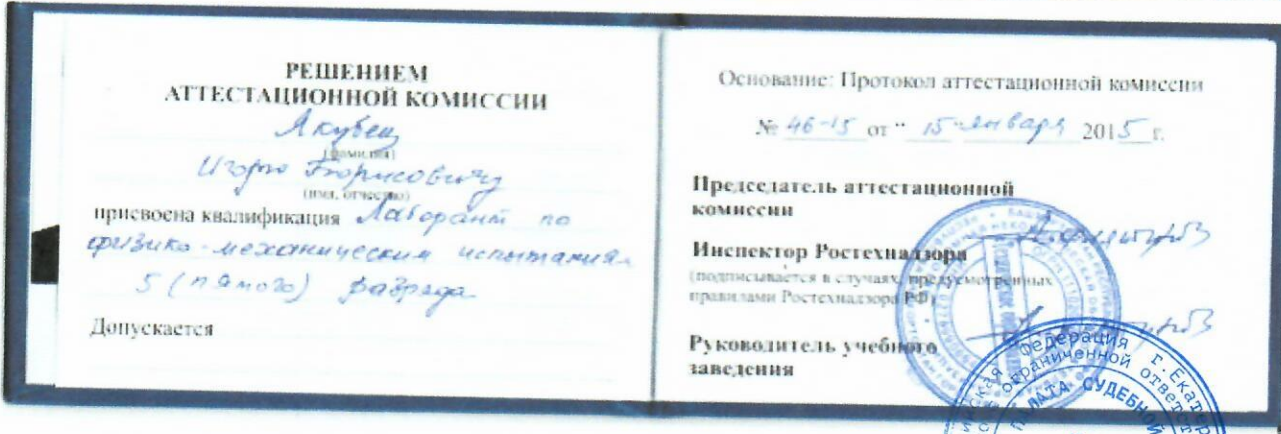 РЕШЕНИЕМ
АТТЕСТАЦИОННОЙ КОМИССИИ
Якубец
(фамилия)
Игорю Борисовичу
(имя, отчество)
присвоена квалификация Лаборант по
физико-механическим испытаниям
5 (пятого) разряда
Допускается
Основание: Протокол аттестационной комиссии
№ 46-15 от " 15 " января 2015 г.
Председатель аттестационной
комиссии
Инспектор Ростехнадзора
(подписывается в случаях, предусмотренных
правилами Ростехнадзора РФ)
Руководитель учебного
заведения
Федерация г. Екатер
ограниченной ответст
ПАЛАТА СУДЕБНОЙ